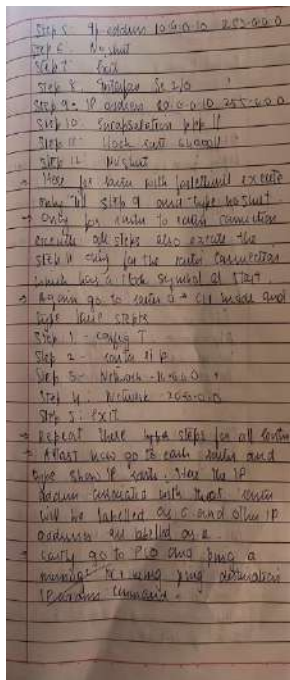 Step 5: Ip address 10.0.0.10 255.0.0.0
Step 6: No shut
Step 7: Exit
Step 8: Interface Se 2/0
Step 9: IP address 20.0.0.10 255.0.0.0
Step 10: Encapsulation ppp
Step 11: Clock rate 64000
Step 12: No shut
→ Here for router with execute
only till step 9 and type no shut.
→ Only for router to router connection
execute all steps also execute the
step 11 only for the router connection
which has a clock symbol at start
→ Again go to router a → CLI mode and
type these steps
Step 1 - config T
Step 2 - router rip
Step 3 - Network -10.0.0.0
Step 4: Network - 20.0.0.0
Step 5: Exit
→ Repeat these steps for all router
→ At last now go to each router and
type show IP route. Here the IP
address associated with that router
will be labelled as c and other IP
address are labelled as R.
→ Lastly go to PC0 and ping a
message using ping destination
IP command.